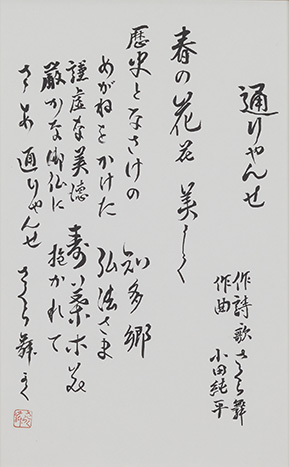 通りゃんせ
作詩 歌 さくら舞
作曲 小田純平
春の花花 美しく
歴史となさけの 知多郷
めがねをかけた 弘法さま
謹虚な美徳
厳かな御仏に 抱かれて
さあ 通りゃんせ さくら舞